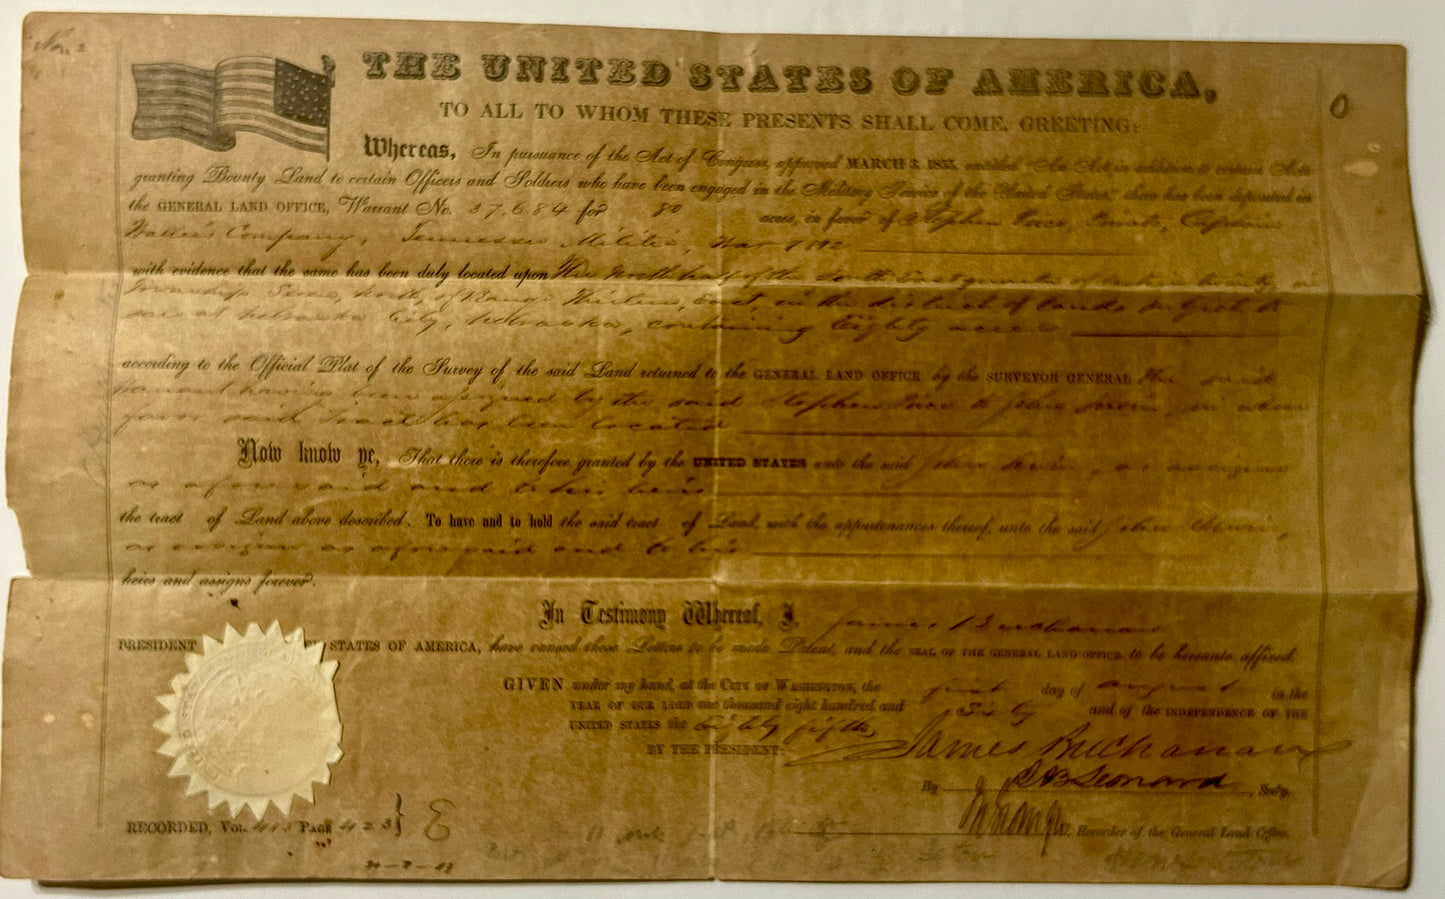 THE UNITED STATES OF AMERICA,
TO ALL TO WHOM THESE PRESENTS SHALL COME, GREETING:
Whereas, In pursuance of the Act of Congress, approved MARCH 3, 1855, entitled "An Act in addition to certain Acts
granting Bounty Land to certain Officers and Soldiers who have been engaged in the Military Service of the United States," there has been deposited in
the GENERAL LAND OFFICE, Warrant No. 37,684 for 80 acres, in favor of Stephen Private, Captain
Company, Tennessee Militia, War 1812
with evidence that the same has been duly located upon the North half of the South East quarter of Section twenty, in
Township Seven, North, of Range Thirteen, East, in the district of Lands subject to
sale at Nebraska City, Nebraska, containing Eighty acres
according to the Official Plat of the Survey of the said Land returned to the GENERAL LAND OFFICE by the SURVEYOR GENERAL the said
Warrant having been assigned by the said Stephen to John in whose
favor said tract has been located
Now know ye, That there is therefore granted by the UNITED STATES unto the said John as assignee
as aforesaid and to his heirs
the tract of Land above described. To have and to hold the said tract of Land, with the appurtenances thereof, unto the said John
as assignee as aforesaid and to his
heirs and assigns forever.
In Testimony Whereof, I, James Buchanan
PRESIDENT STATES OF AMERICA, have caused these Letters to be made Patent, and the SEAL OF THE GENERAL LAND OFFICE to be hereunto affixed.
GIVEN under my hand, at the CITY OF WASHINGTON, the first day of August in the
YEAR OF OUR LORD one thousand eight hundred and Sixty and of the INDEPENDENCE OF THE
UNITED STATES the Eighty fifth
BY THE PRESIDENT: James Buchanan
By Leonard, Sec'y.
Recorder of the General Land Office.
RECORDED, Vol. 413 PAGE 423 E